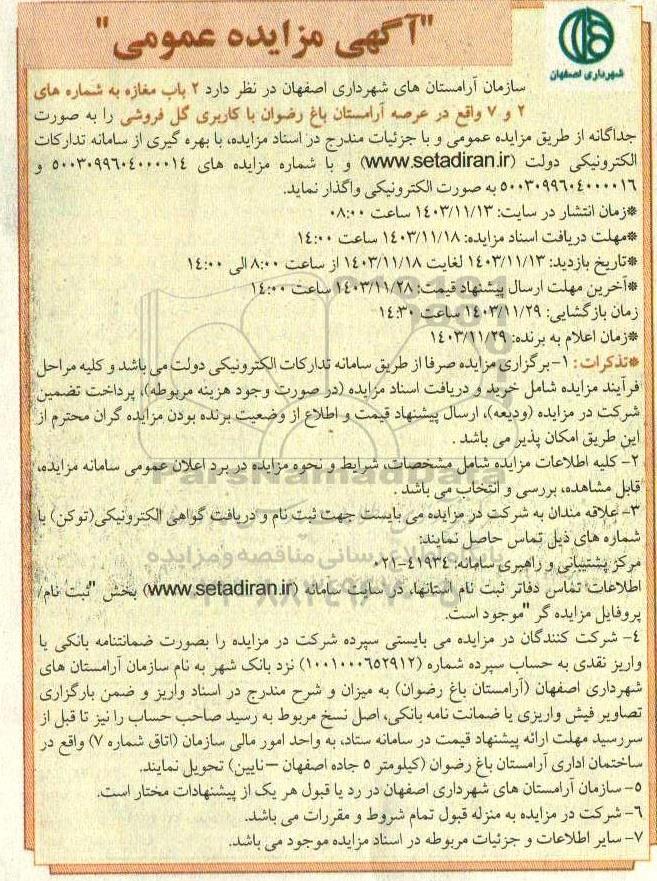 "آگهی مزایده عمومی"
شهرداری اصفهان
سازمان آرامستان های شهرداری اصفهان در نظر دارد ۲ باب مغازه به شماره های
۲ و ۷ واقع در عرصه آرامستان باغ رضوان با کاربری گل فروشی را به صورت
جداگانه از طریق مزایده عمومی و با جزئیات مندرج در اسناد مزایده، با بهره گیری از سامانه تدارکات
الکترونیکی دولت (www.setadiran.ir) و با شماره مزایده های ۵۰۰۳۰۹۹۶۰٤۰۰۰۰۱٤ و
۵۰۰۳۰۹۹۶۰٤۰۰۰۰۱۶ به صورت الکترونیکی واگذار نماید.
*زمان انتشار در سایت: ۱٤۰۳/۱۱/۱۳ ساعت ۰۸:۰۰
*مهلت دریافت اسناد مزایده: ۱٤۰۳/۱۱/۱۸ ساعت ۱٤:۰۰
*تاریخ بازدید: ۱٤۰۳/۱۱/۱۳ لغایت ۱٤۰۳/۱۱/۱۸ از ساعت ۸:۰۰ الی ۱٤:۰۰
*آخرین مهلت ارسال پیشنهاد قیمت: ۱٤۰۳/۱۱/۲۸ ساعت ۱٤:۰۰
زمان بازگشایی: ۱٤۰۳/۱۱/۲۹ ساعت ۱٤:۳۰
*زمان اعلام به برنده: ۱٤۰۳/۱۱/۲۹
*تذکرات: ۱- برگزاری مزایده صرفا از طریق سامانه تدارکات الکترونیکی دولت می باشد و کلیه مراحل
فرآیند مزایده شامل خرید و دریافت اسناد مزایده (در صورت وجود هزینه مربوطه)، پرداخت تضمین
شرکت در مزایده (ودیعه)، ارسال پیشنهاد قیمت و اطلاع از وضعیت برنده بودن مزایده گران محترم از
این طریق امکان پذیر می باشد .
۲- کلیه اطلاعات مزایده شامل مشخصات، شرایط و نحوه مزایده در برد اعلان عمومی سامانه مزایده،
قابل مشاهده، بررسی و انتخاب می باشد .
۳- علاقه مندان به شرکت در مزایده می بایست جهت ثبت نام و دریافت گواهی الکترونیکی(توکن) با
شماره های ذیل تماس حاصل نمایند:
مرکز پشتیبانی و راهبری سامانه: ٤۱۹۳٤-۰۲۱
اطلاعات تماس دفاتر ثبت نام استانها، در سایت سامانه (www.setadiran.ir) بخش "ثبت نام/
پروفایل مزایده گر "موجود است.
٤- شرکت کنندگان در مزایده می بایستی سپرده شرکت در مزایده را بصورت ضمانتنامه بانکی یا
واریز نقدی به حساب سپرده شماره (۱۰۰۱۰۰۰۶۵۲۹۱۲) نزد بانک شهر به نام سازمان آرامستان های
شهرداری اصفهان (آرامستان باغ رضوان) به میزان و شرح مندرج در اسناد واریز و ضمن بارگزاری
تصاویر فیش واریزی یا ضمانت نامه بانکی، اصل نسخ مربوط به رسید صاحب حساب را نیز تا قبل از
سررسید مهلت ارائه پیشنهاد قیمت در سامانه ستاد، به واحد امور مالی سازمان (اتاق شماره ۷) واقع در
ساختمان اداری آرامستان باغ رضوان (کیلومتر ۵ جاده اصفهان –نایین) تحویل نمایند.
۵- سازمان آرامستان های شهرداری اصفهان در رد یا قبول هر یک از پیشنهادات مختار است.
۶- شرکت در مزایده به منزله قبول تمام شروط و مقررات می باشد.
۷- سایر اطلاعات و جزئیات مربوطه در اسناد مزایده موجود می باشد.